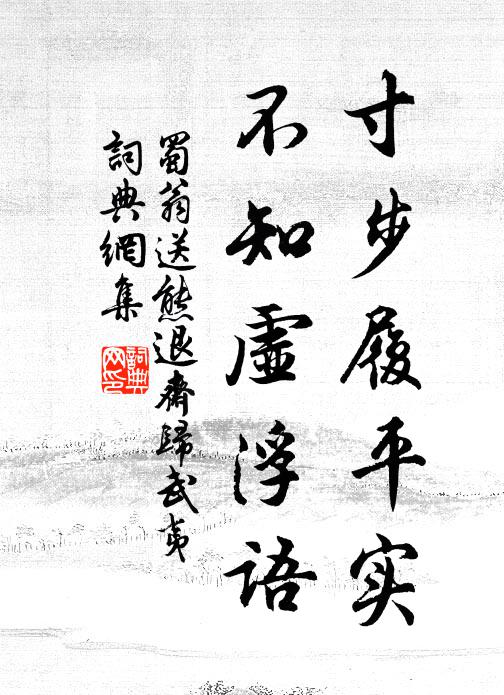 寸步履平实
不知虚浮语
蜀翁送熊退齋歸武夷
詞典網集
詞典网印